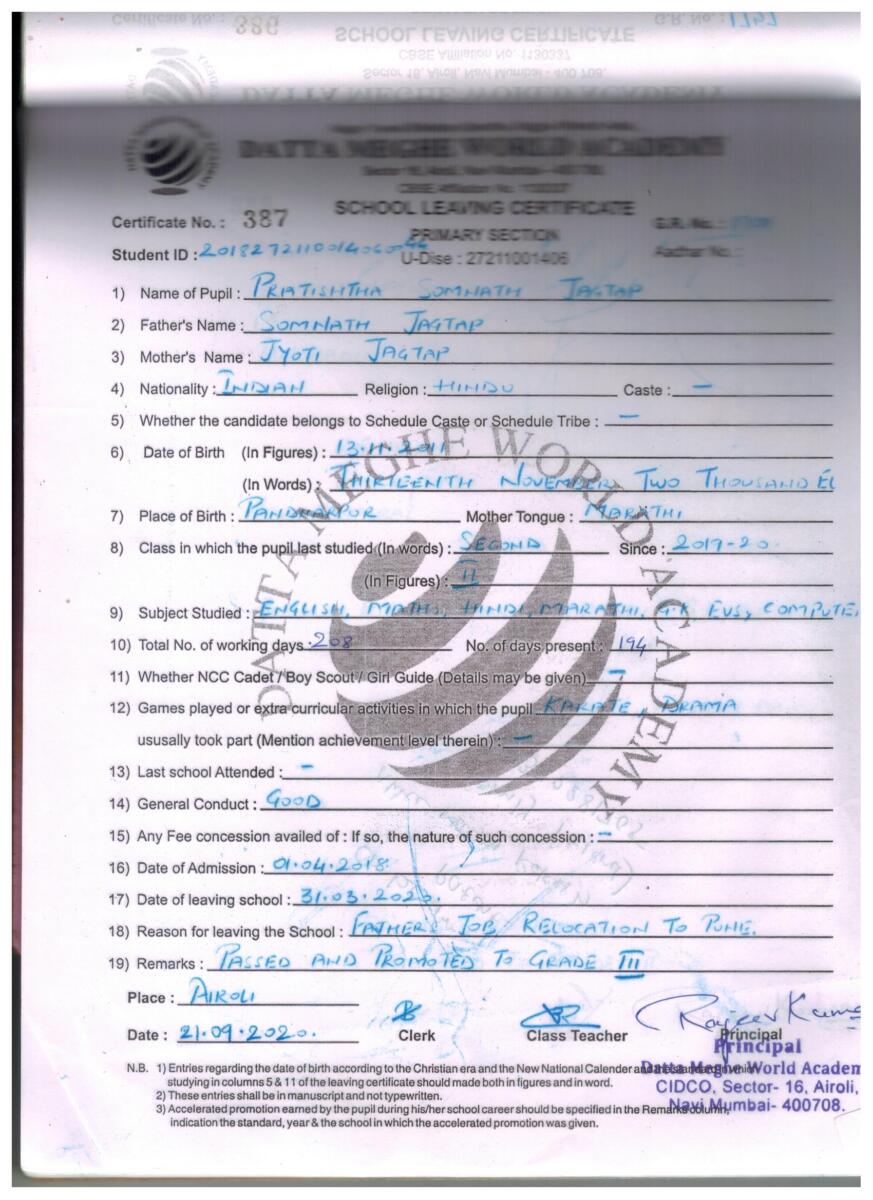 Certificate No. : 386
G.R. No. : 1757
SCHOOL LEAVING CERTIFICATE
CBSE Affiliation No. 1130337
Sector 18, Airoli, Navi Mumbai - 400 708.
DATTA MEGHE WORLD ACADEMY
DATTA MEGHE WORLD ACADEMY
SCHOOL LEAVING CERTIFICATE
Certificate No. : 387
G.R. No. :
PRIMARY SECTION
Student ID :
U-Dise : 27211001406
Aadhar No. :
1) Name of Pupil : PRATISHTHA SOMNATH JAGTAP
2) Father's Name : SOMNATH JAGTAP
3) Mother's Name : JYOTI JAGTAP
4) Nationality : INDIAN Religion : HINDU Caste : —
5) Whether the candidate belongs to Schedule Caste or Schedule Tribe : —
6) Date of Birth (In Figures) : 13.11.2011
(In Words) : THIRTEENTH NOVEMBER TWO THOUSAND EL
7) Place of Birth : PANDHARPUR Mother Tongue : MARATHI
8) Class in which the pupil last studied (In words) : SECOND Since : 2019-20.
(In Figures) : II
9) Subject Studied : ENGLISH, MATHS, HINDI, MARATHI, G.K EVS, COMPUTE
10) Total No. of working days : 208 No. of days present : 194
11) Whether NCC Cadet / Boy Scout / Girl Guide (Details may be given) —
12) Games played or extra curricular activities in which the pupil KARATE, DRAMA
ususally took part (Mention achievement level therein) : —
13) Last school Attended : —
14) General Conduct : GOOD
15) Any Fee concession availed of : If so, the nature of such concession : —
16) Date of Admission : 01.04.2018
17) Date of leaving school : 31.03.2020.
18) Reason for leaving the School : FATHER'S JOB RELOCATION TO PUNE.
19) Remarks : PASSED AND PROMOTED TO GRADE III
DATTA MEGHE WORLD ACADEMY
Place : AIROLI
Rajeev Kuma
Date : 21.09.2020. Clerk Class Teacher Principal
Principal
Datta Meghe World Academ
CIDCO, Sector- 16, Airoli,
Navi Mumbai- 400708.
N.B. 1) Entries regarding the date of birth according to the Christian era and the New National Calender and the standard
studying in columns 5 & 11 of the leaving certificate should made both in figures and in word.
2) These entries shall be in manuscript and not typewritten.
3) Accelerated promotion earned by the pupil during his/her school career should be specified in the Remarks column,
indication the standard, year & the school in which the accelerated promotion was given.